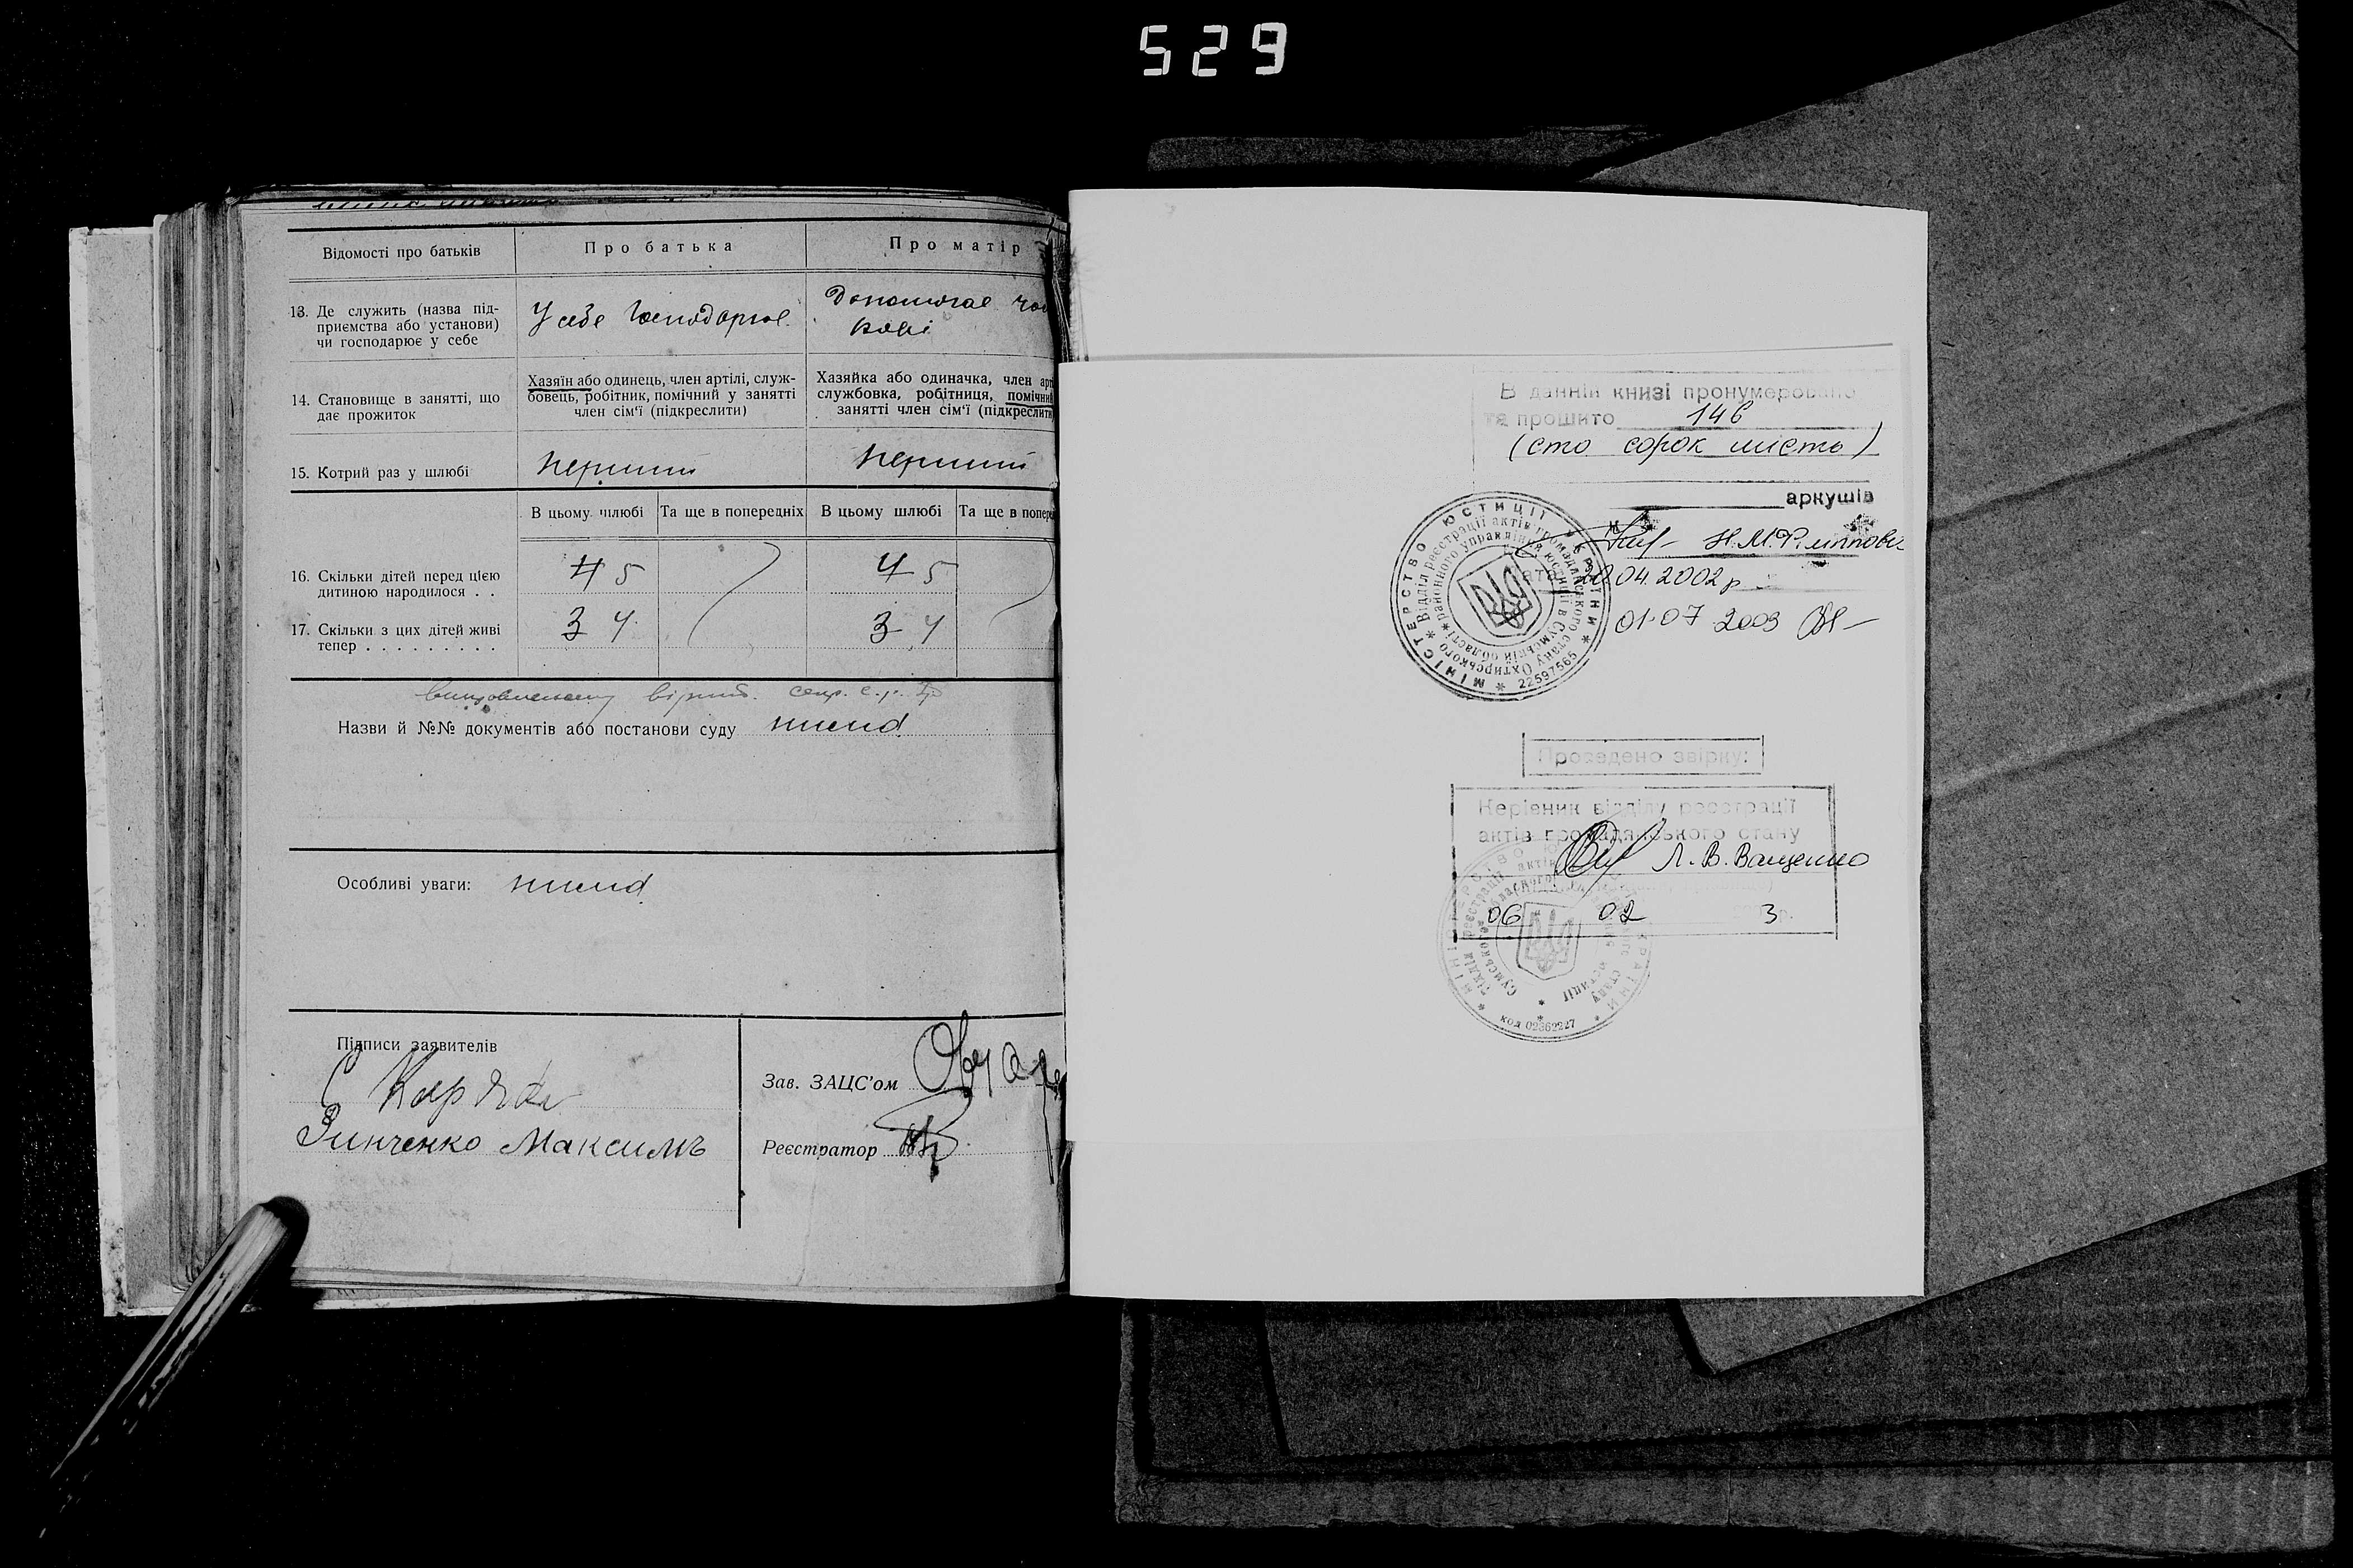 529
Відомості про батьків
Про батька
Про матір
13. Де служить (назва під-
приємства або установи)
чи господарює у себе
У себе господарює
Допомогає чо
вкові
14. Становище в занятті, що
дає прожиток
Хазяїн або одинець, член артілі, служ-
бовець, робітник, помічний у занятті
член сім'ї (підкреслити)
Хазяйка або одиначка, член арт
службовка, робітниця, помічни
занятті член сім'ї (підкреслити
15. Котрий раз у шлюбі
перший
перший
В цьому шлюбі
Та ще в попередніх
В цьому шлюбі
Та ще в попере
16. Скільки дітей перед цією
дитиною народилося . .
4 5
4 5
17. Скільки з цих дітей живі
тепер . . . . . . . . .
3 4
3 4
Назви й №№ документів або постанови суду
Особливі уваги:
Підписи заявителів
Зинченко Максимъ
Зав. ЗАЦС'ом
Реєстратор
В данній книзі пронумеровано
та прошито 146
(сто сорок шість)
аркушів
Н.М.
Дата 04.2002р
01.07 2003
МІНІСТЕРСТВО ЮСТИЦІЇ УКРАЇНИ
Відділ реєстрації актів громадянського стану Охтирського
районного управління юстиції в Сумській області
22597565
Проведено звірку:
Керівник відділу реєстрації
актів громадянського стану
Л. В. Ващенко
06 02 3 р.
код 02362227